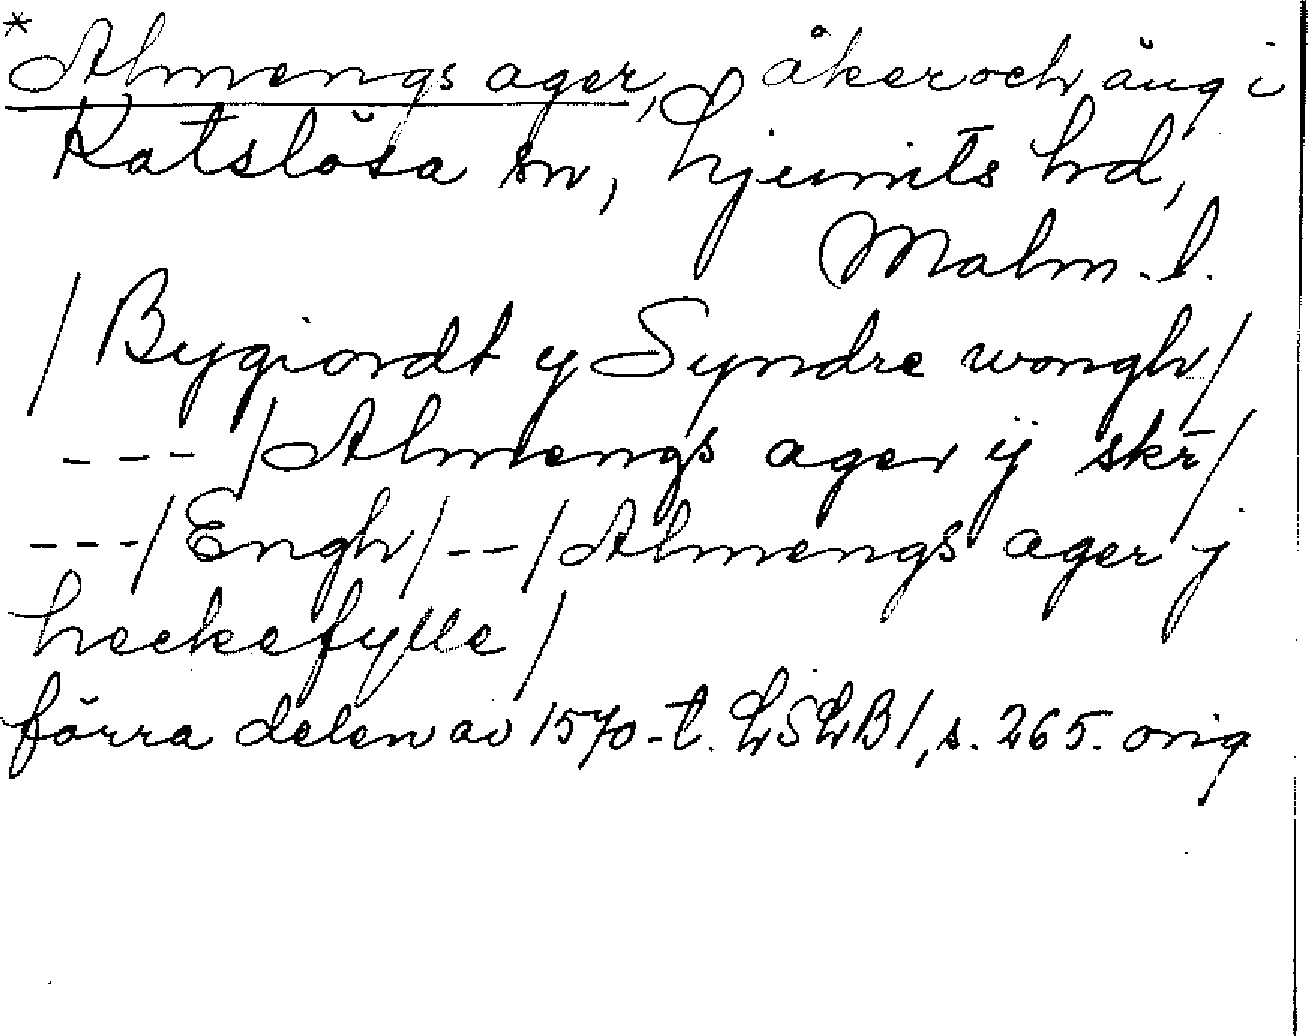 *Almengs ager, åker och äng i
Katslösa sn, Ljunits hd,
Malm. l.
/Bygiordt y Syndre wongh/
---/Almengs ager ij skr/
---/Engh/--/Almengs ager j
heckefylle/
förra delen av 1570-t. LSLB1, s. 265. orig